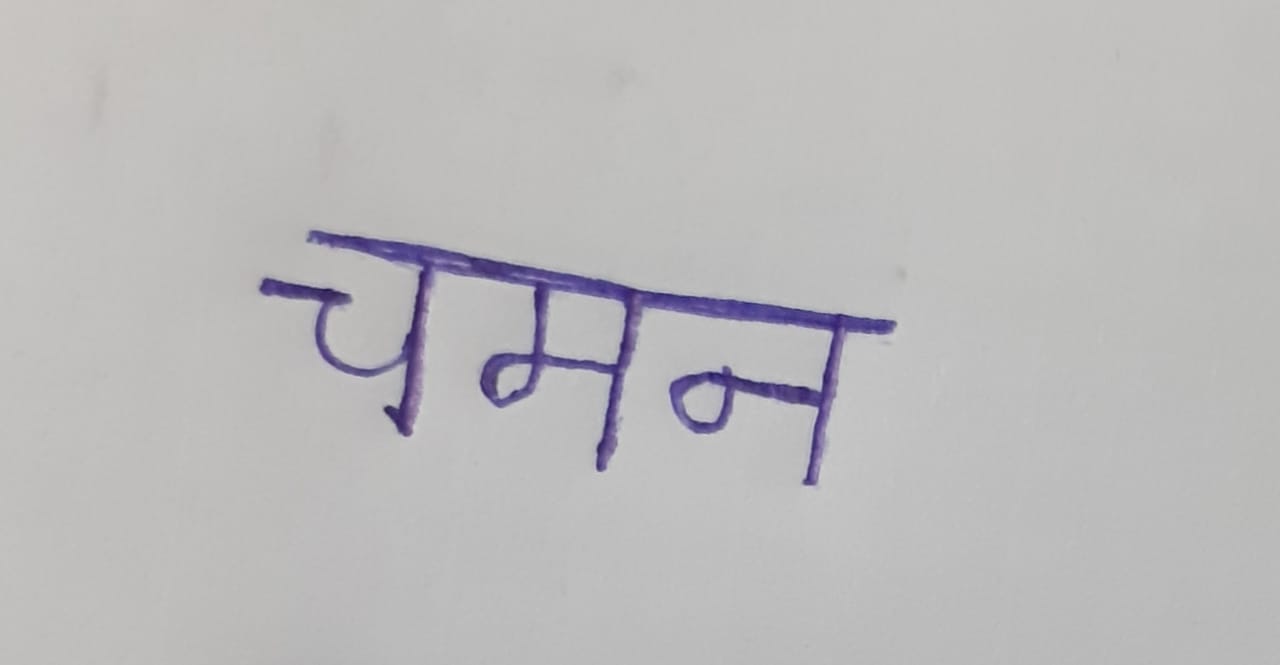 चमन